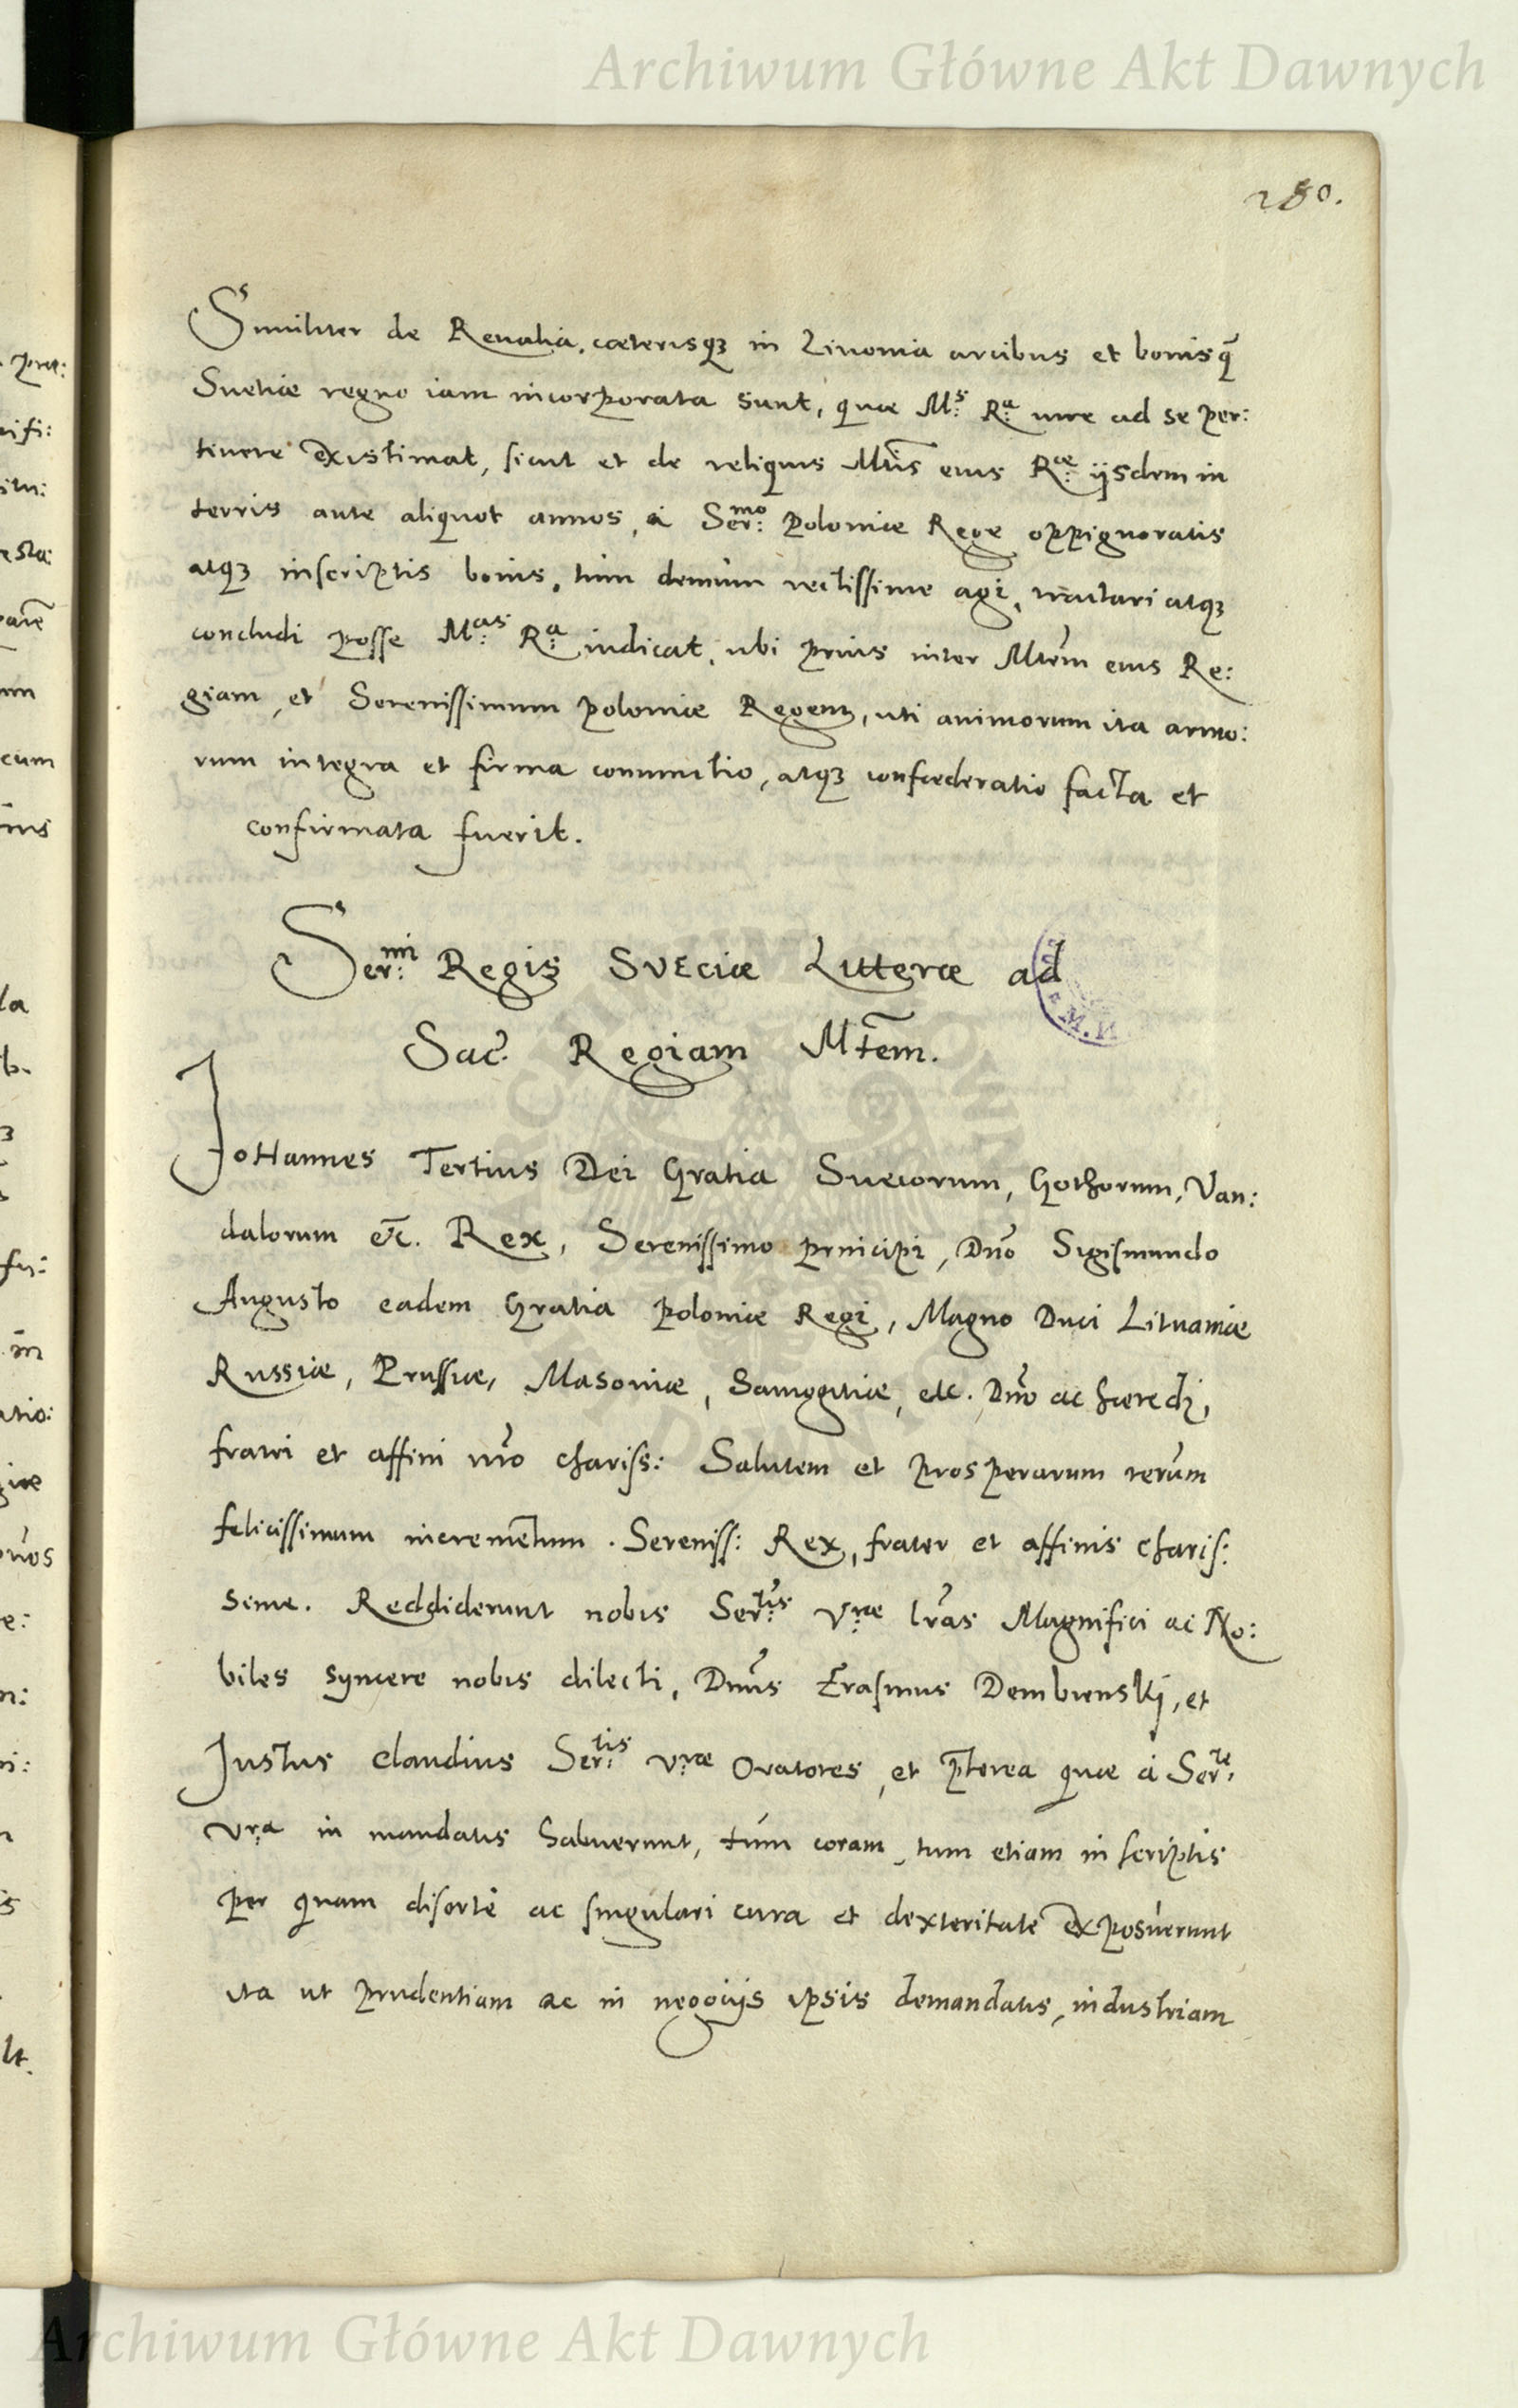 Archiwum Główne Akt Dawnych
280.
Similiter de Reualia, cæterisq₃ in Liuonia arcibus et bonis q̃
Suetiæ regno iam incorporata sunt, quæ M:ˢ R:ᵃ iure ad se per:
tinere existimat, sicut et de reliquis Mtis̃ eius R:ᵃᵉ ijsdem in
terris ante aliquot annos, à Ser:ᵐᵒ Poloniæ Rege oppignoratis
atq₃ inscriptis bonis, tùm demùm rectissime agi, tractari atq₃
concludi posse M:ᵃˢ R:ᵃ iudicat, ubi prius inter Mtem̃ eius Re:
giam, et Serenissimum Poloniæ Regem, uti animorum ita armo:
rum integra et firma coniunctio, atq₃ confœderatio facta et
confirmata fuerit.
Ser:ᵐⁱ Regis Sveciæ Litteræ ad
Sac. Regiam Mtem̃.
Johannes Tertius Dei Gratia Suecorum, Gothorum, Van:
dalorum etc̃. Rex, Serenissimo Principi, Dño Sigismundo
Augusto eadem Gratia Poloniæ Regi, Magno Duci Lituaniæ
Russiæ, Prussiæ, Masoniæ, Samogitiæ, etc. Dño ac hæredi,
fratri et affini nr̃o chariss: Salutem et prosperarum rerùm
felicissimum incrementum. Sereniss: Rex, frater et affinis charis:
sime. Reddiderunt nobis Ser:ᵗⁱˢ Vr̃æ lr̃as Magnifici ac No:
biles syncere nobis dilecti, Dñus Erasmus Dembienskj, et
Justus Claudius Ser:ᵗⁱˢ Vr̃æ Oratores, et p̃terea quæ à Ser:ᵗᵉ
Vr̃a in mandatis habuerunt, tùm coram, tum etiam in scriptis
per quam disertè ac singulari cura et dexteritate exposuerunt
ita ut prudentiam ac in negocijs ipsis demandatis, industriam
Archiwum Główne Akt Dawnych